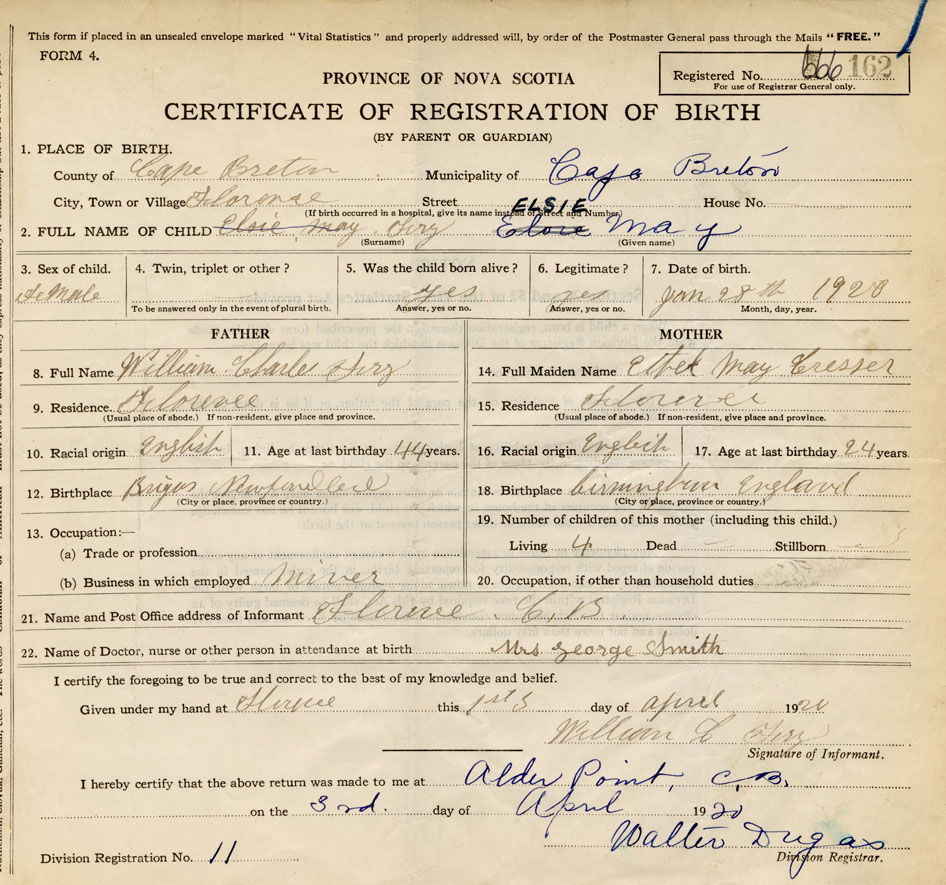 This form if placed in an unsealed envelope marked "Vital Statistics" and properly addressed will, by order of the Postmaster General pass through the Mails "FREE."
FORM 4.
Registered No. 666 162
For use of Registrar General only.
PROVINCE OF NOVA SCOTIA
CERTIFICATE OF REGISTRATION OF BIRTH
(BY PARENT OR GUARDIAN)
1. PLACE OF BIRTH.
County of Cape Breton Municipality of Cape Breton
City, Town or Village Florence Street House No.
(If birth occurred in a hospital, give its name instead of Street and Number)
ELSIE
2. FULL NAME OF CHILD Elsie May May
(Surname) (Given name)
3. Sex of child. 4. Twin, triplet or other? 5. Was the child born alive? 6. Legitimate? 7. Date of birth.
Female yes yes Jan 28th
To be answered only in the event of plural birth. Answer, yes or no. Answer, yes or no. Month, day, year.
FATHER
8. Full Name William Charles
9. Residence. Florence
(Usual place of abode.) If non-resident, give place and province.
10. Racial origin English 11. Age at last birthday 44 years.
12. Birthplace Brigus Newfoundland
(City or place, province or country.)
13. Occupation:—
(a) Trade or profession
(b) Business in which employed Miner
MOTHER
14. Full Maiden Name Ethel May Cresser
15. Residence Florence
(Usual place of abode.) If non-resident, give place and province.
16. Racial origin English 17. Age at last birthday 24 years.
18. Birthplace Birmingham England
(City or place, province or country.)
19. Number of children of this mother (including this child.)
Living 4 Dead Stillborn
20. Occupation, if other than household duties
21. Name and Post Office address of Informant Florence C.B.
22. Name of Doctor, nurse or other person in attendance at birth Mrs George Smith
I certify the foregoing to be true and correct to the best of my knowledge and belief.
Given under my hand at Florence this 1st day of april 19
William C
Signature of Informant.
I hereby certify that the above return was made to me at Alder Point, C.B.
on the 3rd. day of April 19
Walter Dugas
Division Registrar.
Division Registration No. 11